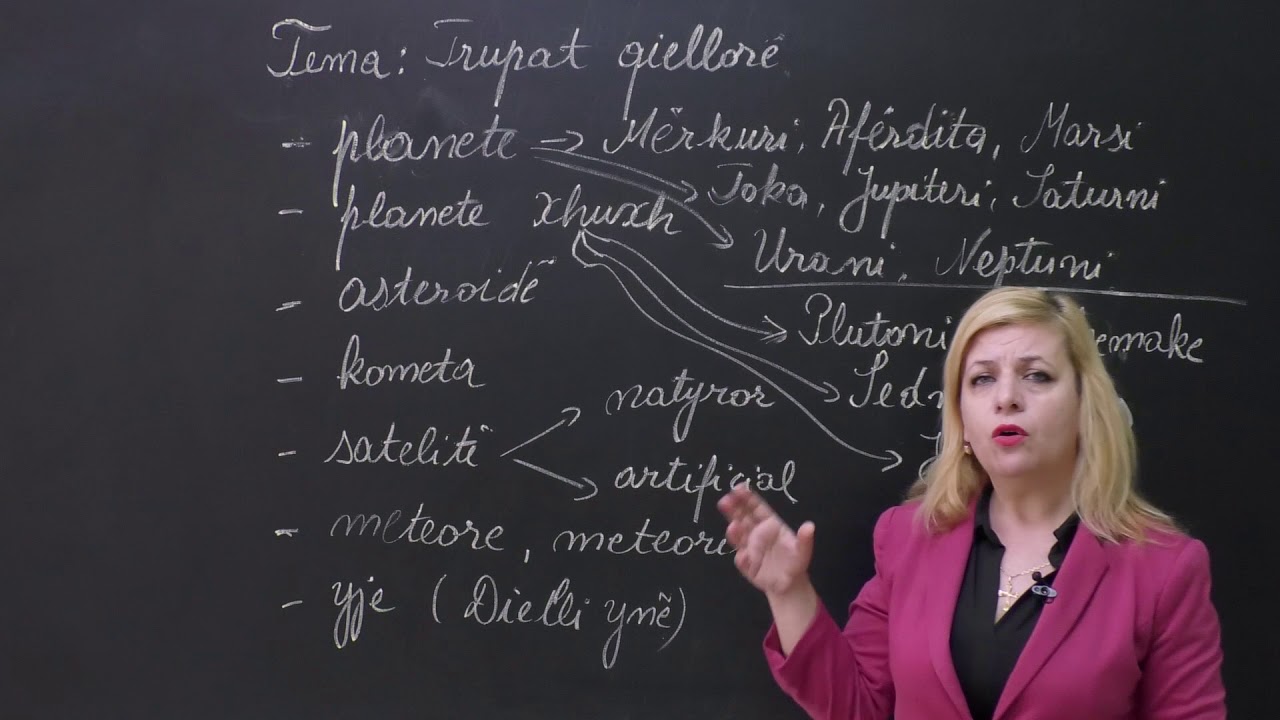 Tema: Trupat qiellorë
- planete → Mërkuri, Afërdita, Marsi
Toka, Jupiteri, Saturni
Urani, Neptuni
- planete xhuxh
Plutoni
- asteroidë
- kometa
- satelitë
natyror
artificial
- meteore,
- yje (Dielli ynë)